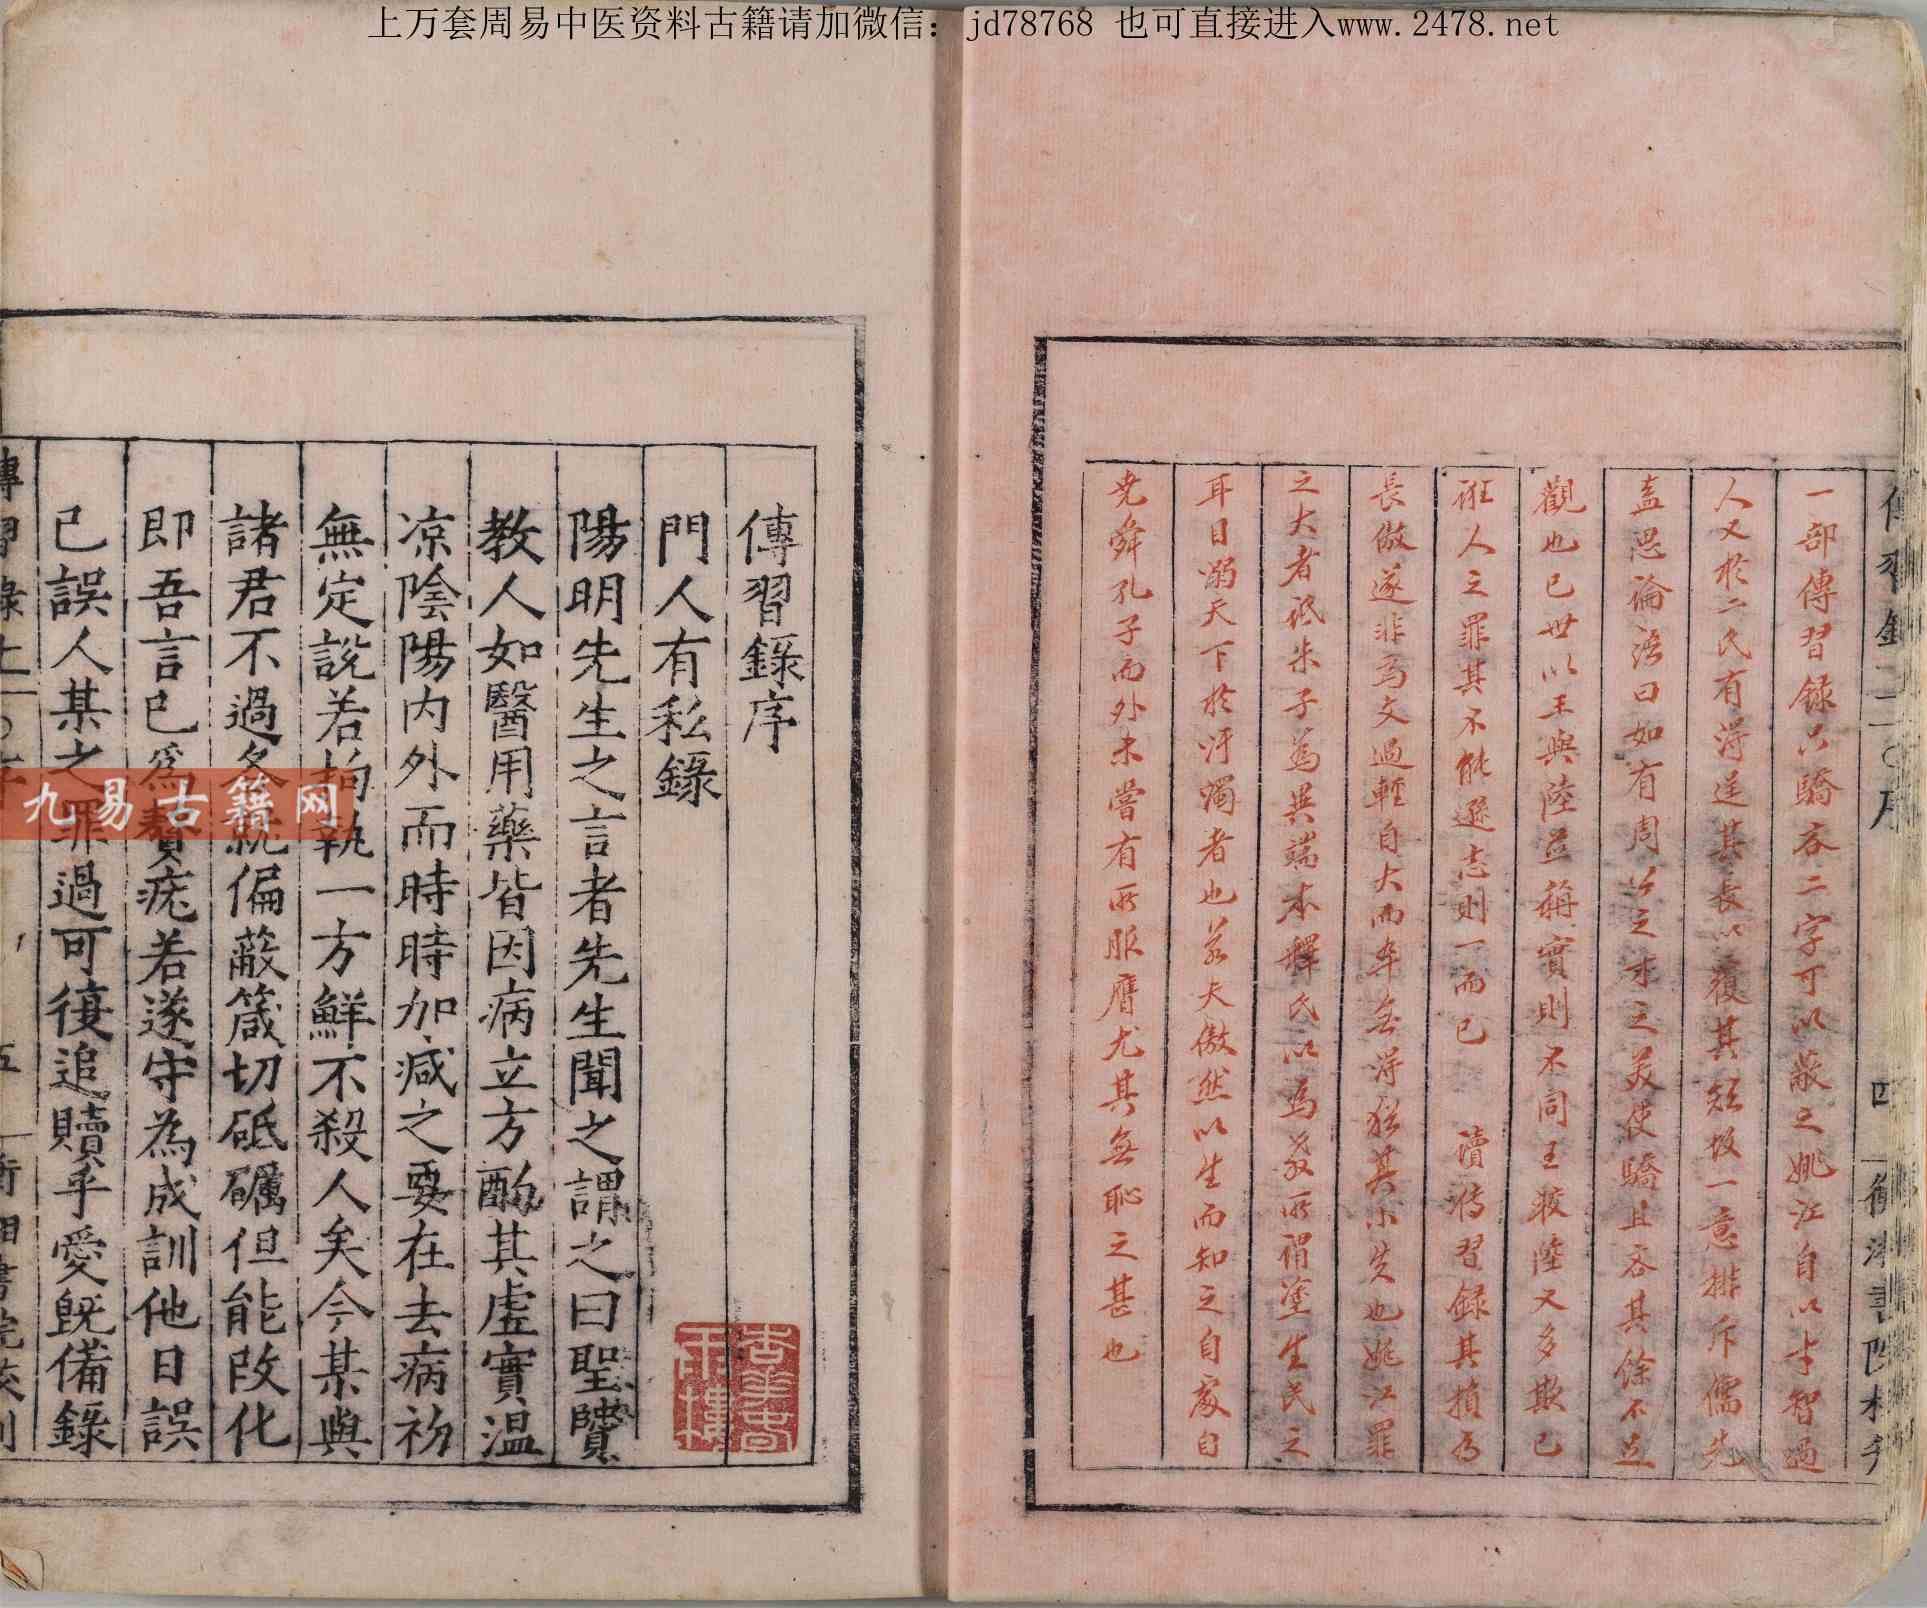 上万套周易中医资料古籍请加微信：jd78768 也可直接进入www.2478.net
一部傳習録只驕吝二字可以蔽之姚江自以才智過
人又於二氏有得逞其長以覆其短故一意排斥儒先
盍思論語曰如有周公之才之美使驕且吝其餘不足
觀也已世以王與陸並稱實則不同王較陸又多欺己
誑人之罪其不能遜志則一而已 讀傳習録其損為
長傲遂非為文過輕自大而卒無得猶其小失也姚江罪
之大者詆朱子為異端本釋氏以為教所謂塗生民之
耳目溺天下於汙濁者也若夫傲然以生而知之自處自
堯舜孔子而外未嘗有所服膺尤其無恥之甚也
傳習錄序
門人有私錄
陽明先生之言者先生聞之謂之曰聖賢
教人如醫用藥皆因病立方酌其虛實温
凉陰陽内外而時時加减之要在去病初
無定說若拘執一方鮮不殺人矣今某與
諸君不過各就偏蔽箴切砥礪但能改化
即吾言已爲贅疣若遂守為成訓他日誤
己誤人某之罪過可復追贖乎愛既備錄
九易古籍网